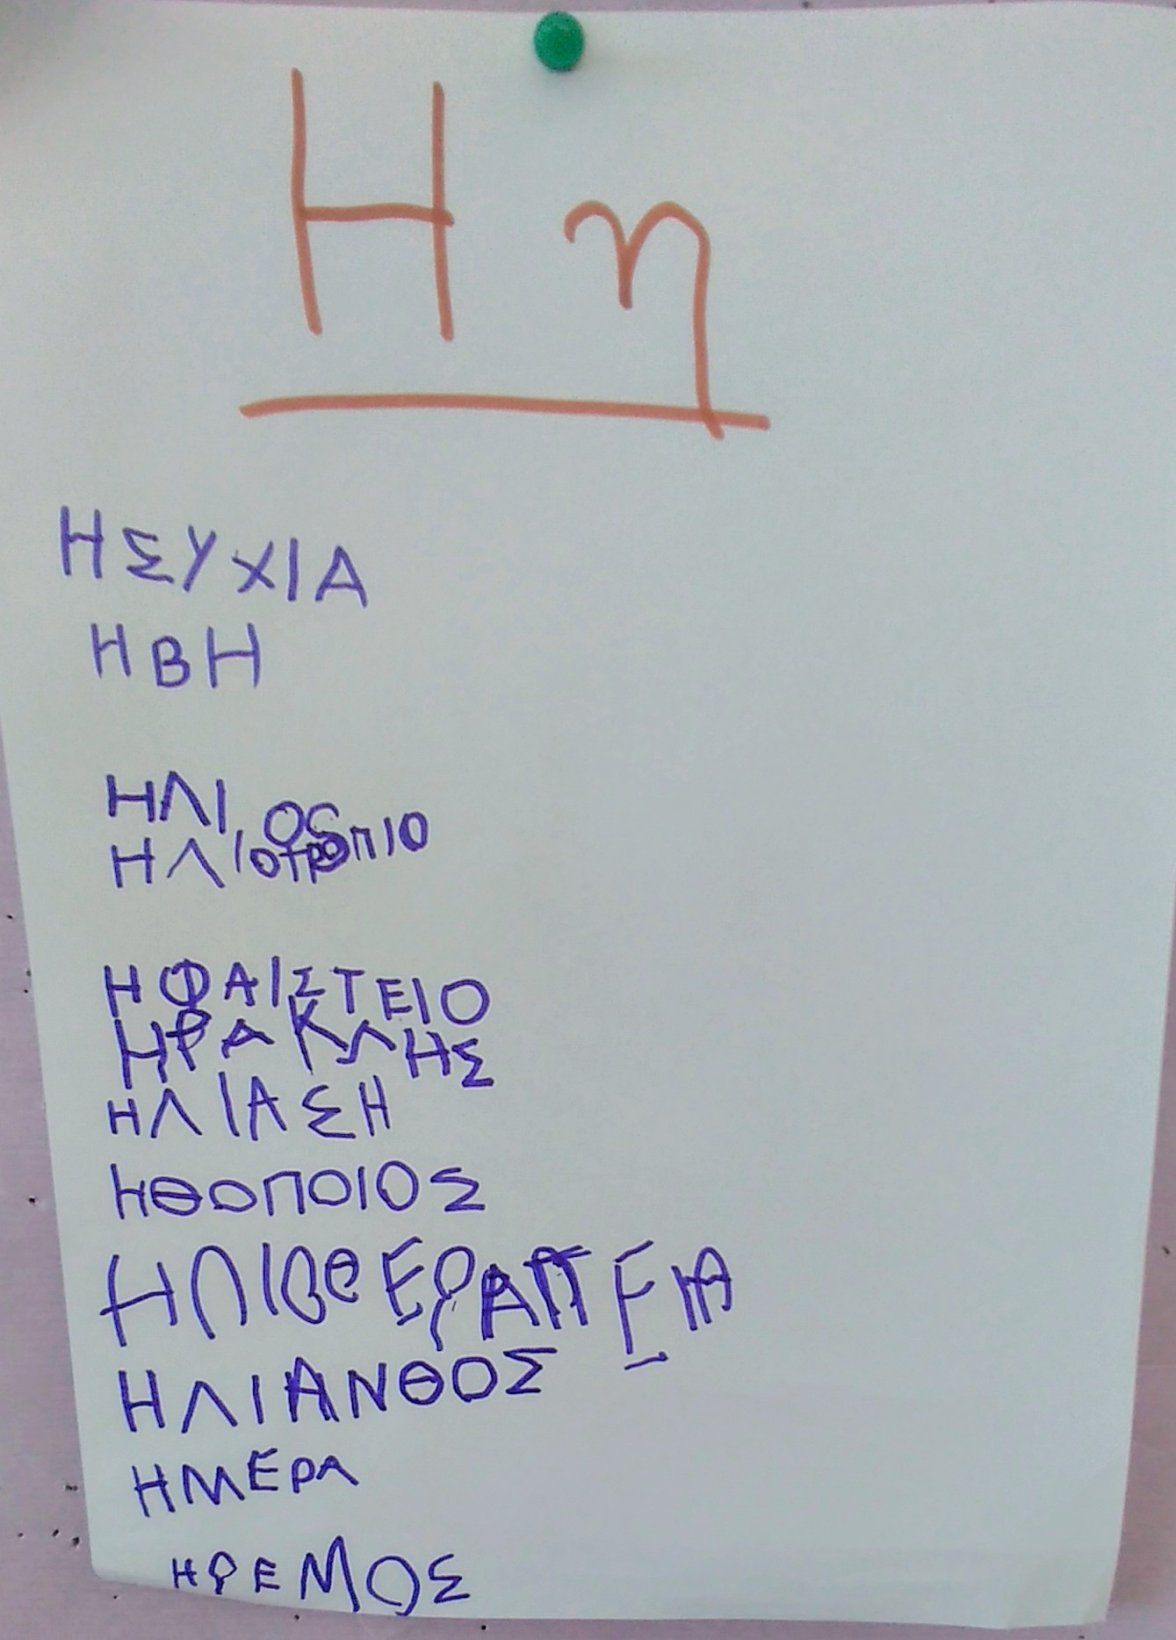 Η η
ΗΣΥΧΙΑ
ΗΒΗ
ΗΛΙΟΣ
ΗΛΙΟΤΡΟΠΙΟ
ΗΦΑΙΣΤΕΙΟ
ΗΡΑΚΛΗΣ
ΗΛΙΑΣΗ
ΗΘΟΠΟΙΟΣ
ΗΛΙΟΘΕΡΑΠΕΙΑ
ΗΛΙΑΝΘΟΣ
ΗΜΕΡΑ
ΗΡΕΜΟΣ